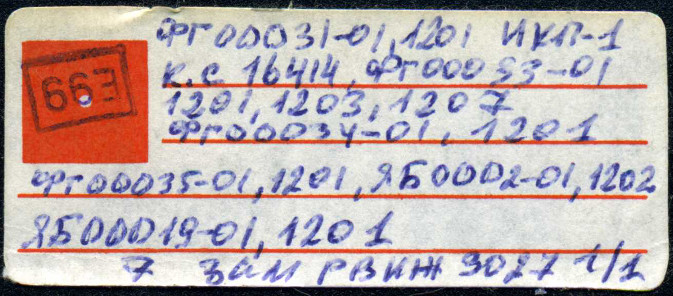 ФГ00031-01,1201 ИКП-1
К.С 16414, ФГ00033-01
1201, 1203, 1207
ФГ00034-01, 1201
ФГ00035-01, 1201, ЯБ0002-01, 1202
ЯБ00019-01, 1201
7 ЗАМ РВИЖ 3027 1/1